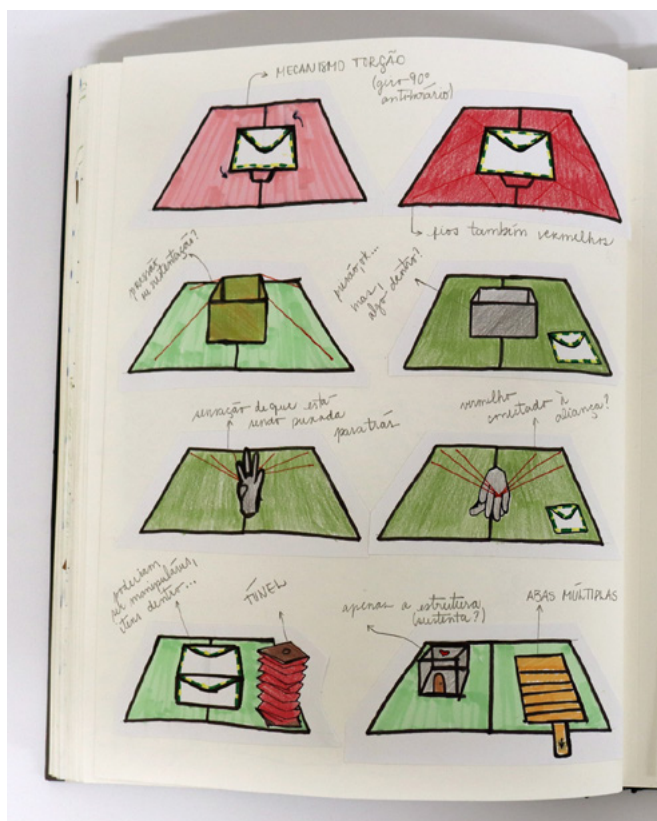 MECANISMO TORÇÃO
(giro 90º
anti-horário)
fios também vermelhos
pressão,
sustentação?
pressão, ok...
mas,
algo dentro?
sensação de que está
sendo puxada
para trás
vermelho
conectado à
aliança?
poderiam
ser manipuláveis,
itens dentro...
TÚNEL
apenas a estrutura
(sustenta?)
ABAS MÚLTIPLAS